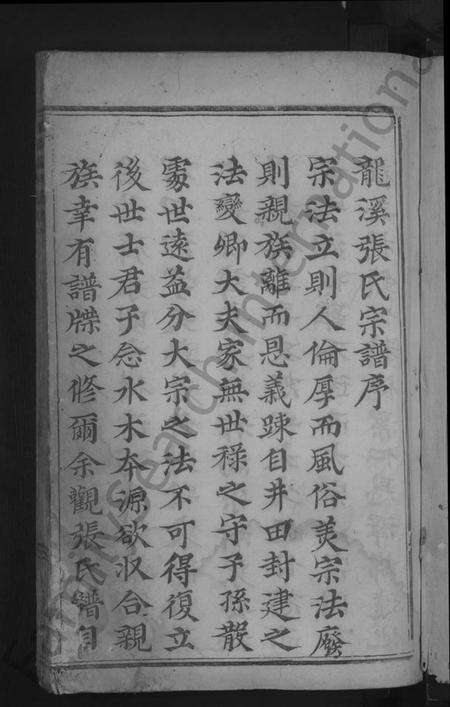 龍溪張氏宗譜序
宗法立則人倫厚而風俗美宗法廢
則親族離而恩義踈自井田封建之
法變卿大夫家無世祿之守子孫散
處世遠益分大宗之法不可得復立
後世士君子念水木本源欲收合親
族幸有譜牒之修爾余觀張氏譜自